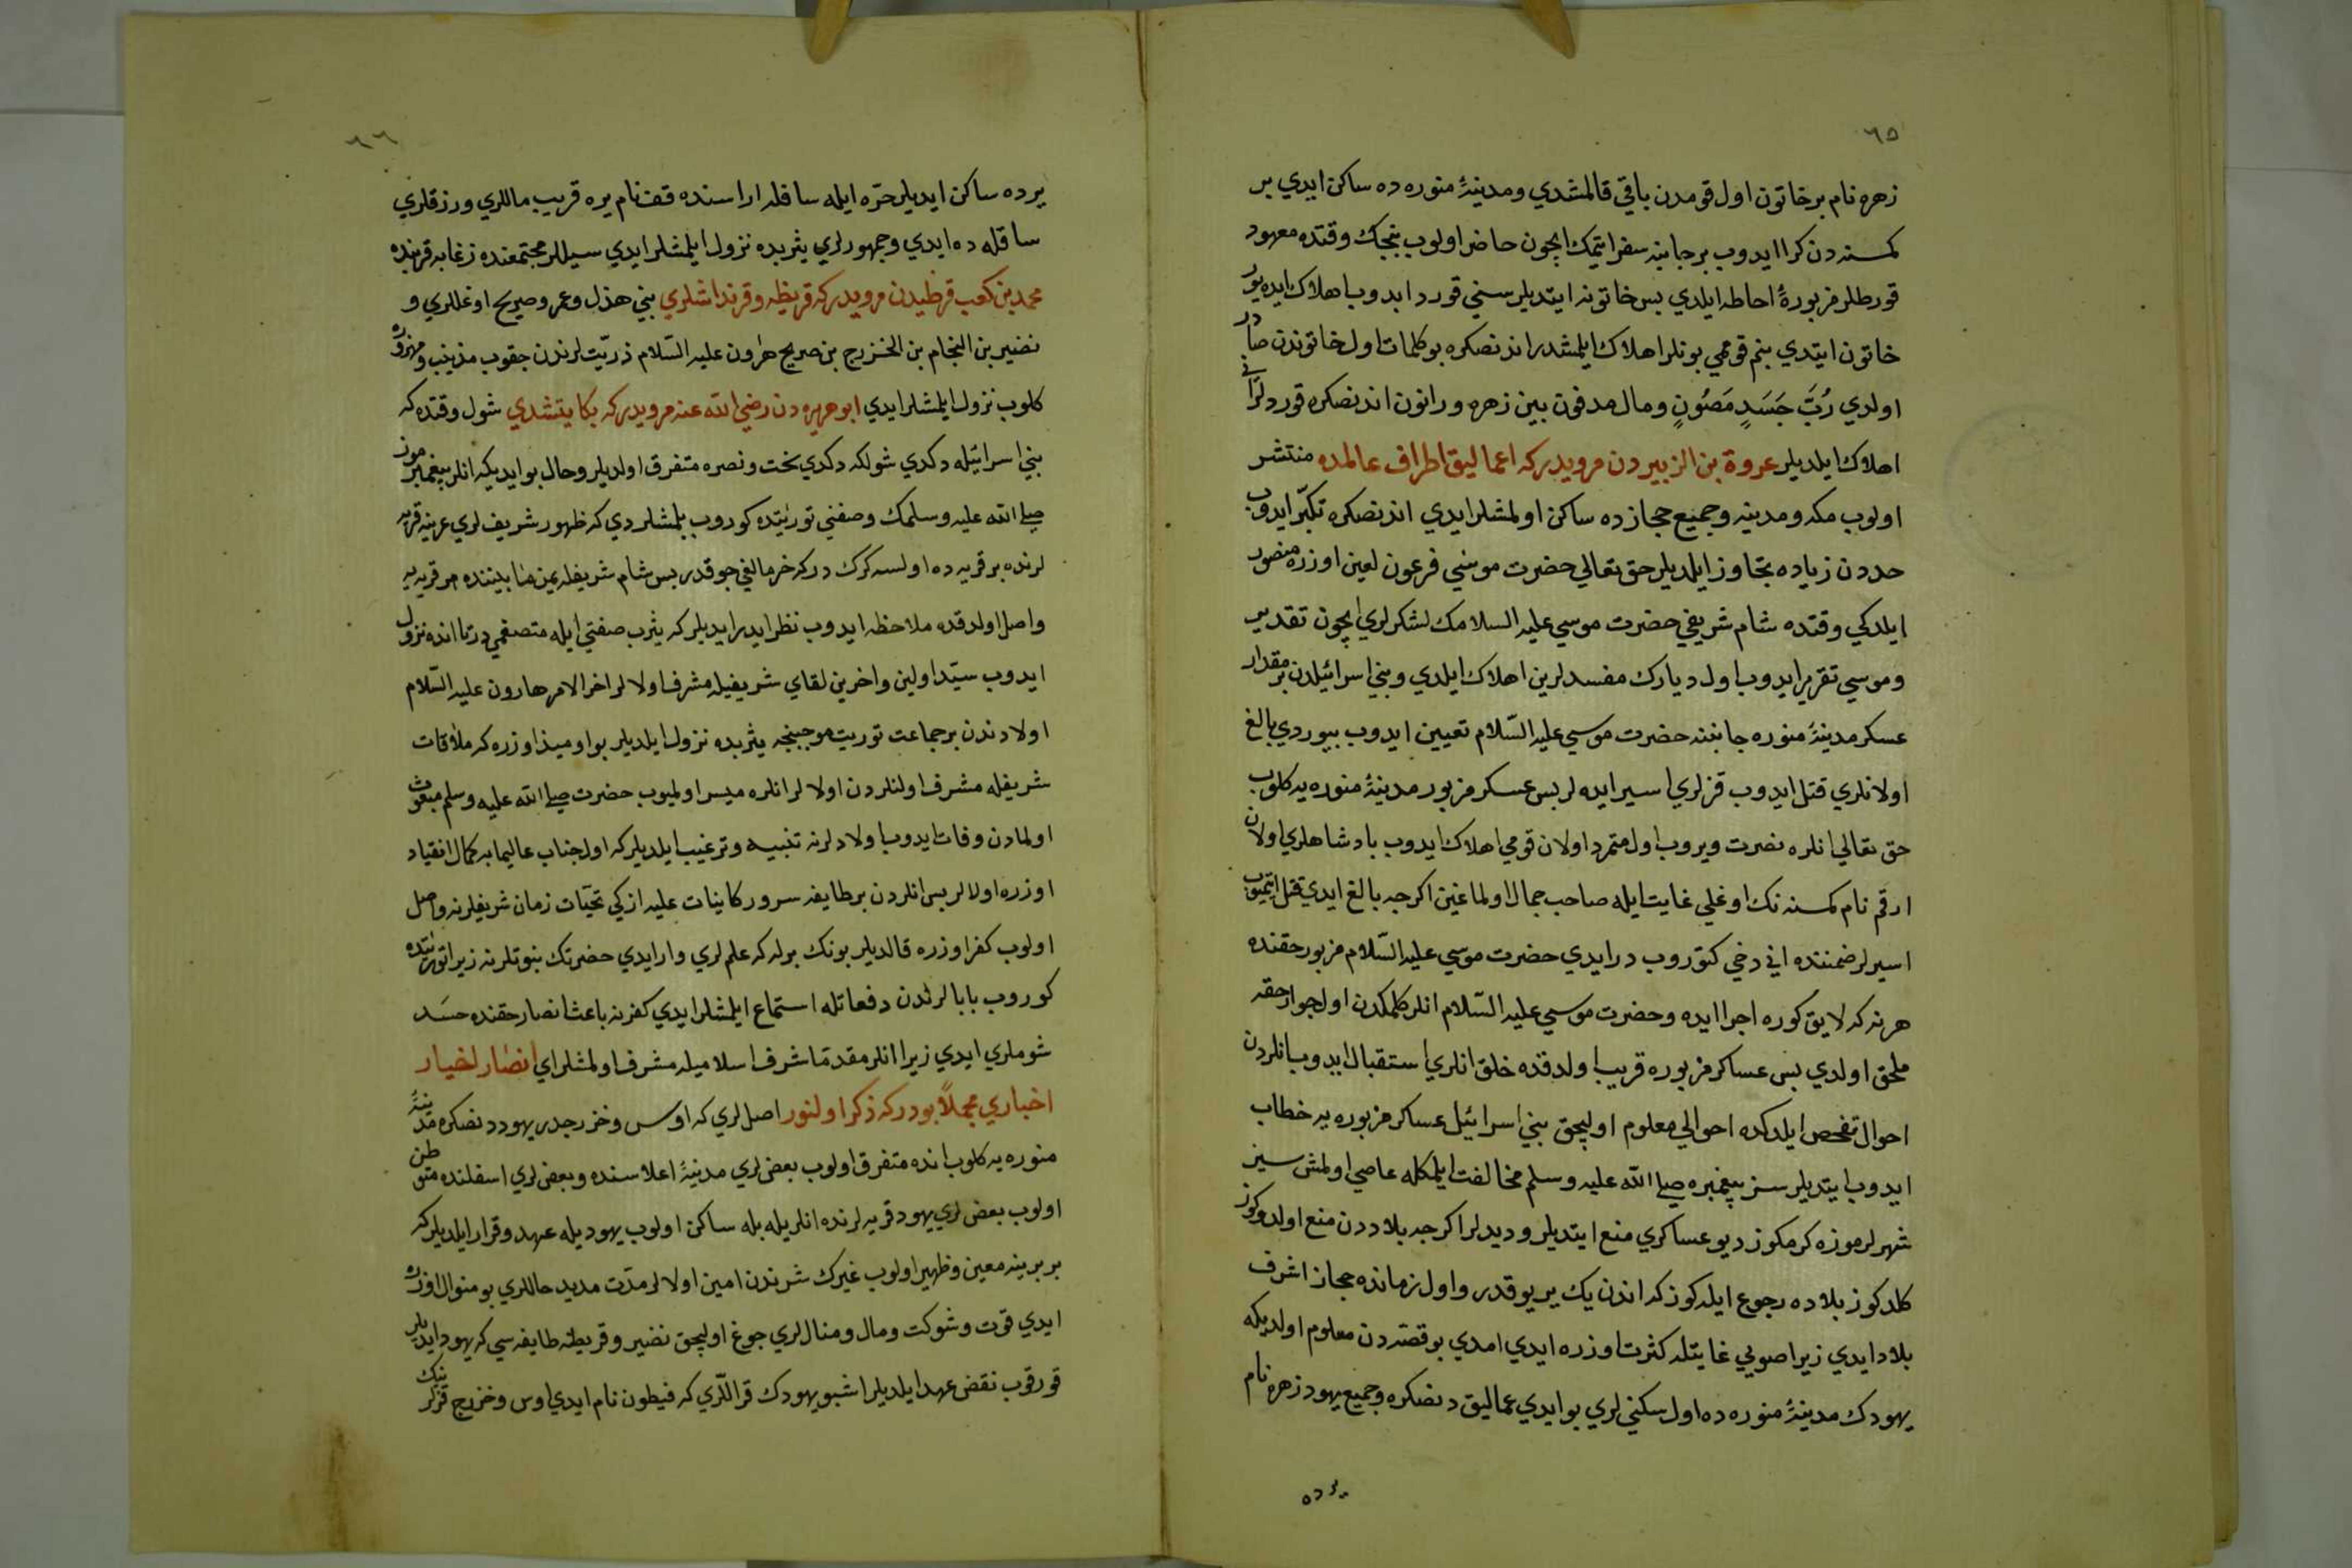 ٦٥
زهره نام بر خاتون اول قومدن باقي قالمشدي ومدينهٔ منوره ده ساكن ايدي بر
كمسنه دن كرا ايدوب بر جانبه سفر ايتمك ايچون حاضر اولوب بنجك وقتده معهود
قورطلر مزبورهٔ احاطه ايلدي بس خاتونه ايتديلر سني قورد ايدوب هلاك ايده يور
خاتون ايتدي بنم قومي بونلر اهلاك ايلمشدر اندنصكره بو كلمات اول خاتوندن صادر
اولدي رُبَّ جَسَدٍ مَصُونٍ ومال مدفون بين زهره ورانون اندنصكره قوردلر اني
اهلاك ايلديلر عروة بن الزبيردن مرويدركه اعماليق اطراف عالمده منتشر
اولوب مكه ومدينه وجميع حجازده ساكن اولمشلر ايدي اندنصكره تكبّر ايدوب
حددن زياده تجاوز ايلديلر حق تعالي حضرت موسي فرعون لعين اوزره منصور
ايلدكي وقتده شام شريفي حضرت موسي عليه السلامك لشكرلري ايچون تقدير
وموسي تقرير ايدوب اول ديارك مفسدلرين اهلاك ايلدي وبني اسرائيلدن بر مقدار
عسكر مدينهٔ منوره جانبنه حضرت موسي عليه السّلام تعيين ايدوب بيوردي بالغ
اولانلري قتل ايدوب قزلري اسير ايده لر بس عسكر مزبور مدينهٔ منوره يه كلوب
حق تعالي انلره نصرت ويروب اول متمرد اولان قومي اهلاك ايدوب بادشاهلري اولان
ارقم نام كمسنه نك اوغلي غايت ايله صاحب جمال اولماغين اكرچه بالغ ايدي قتل ايتميوب
اسيرلر ضمننده اني دخي كتوروب درايدي حضرت موسي عليه السّلام مزبور حقنده
هر نه كه لايق كوره اجرا ايده وحضرت موسي عليه السّلام انلر كلمكدن اول جوار حقه
ملحق اولدي بس عساكر مزبوره قريب اولدقده خلق انلري استقبال ايدوب انلردن
احوال تفحص ايلدكده احوالي معلوم اوليجق بني اسرائيل عساكر مزبوره يه خطاب
ايدوب ايتديلر سز پيغمبره صلي الله عليه وسلم مخالفت ايلمكله عاصي اولمش سيز
شهرلرموزه كرمكوز ديو عساكري منع ايتديلر وديدلر اكرچه بلاددن منع اولدوكوز
كلدكوز بلاده رجوع ايله كوز كه اندن يك ير يوقدر واول زمانده حجاز اشرف
بلاد ايدي زيرا صويي غايتله كثرت اوزره ايدي امدي بو قصّه دن معلوم اولديكه
يهودك مدينهٔ منوره ده اول سكني لري بو ايدي عماليق دنصكره وجميع يهود زهره نام
يرده
٦٦
يرده ساكن ايديلر حرّه ايله سافله اراسنده قف نام يره قريب ماللري ورزقلري
سافله ده ايدي وجمهورلري يثربده نزول ايلمشلر ايدي سيللر مجتمعنده زغابه قربنده
محمد بن كعب قرظيدن مرويدركه قريظه وقرنداشلري بني هذل وعمرو صريح اوغللري و
نضير بن النجام بن الخزرج بن صريح هٰرون عليه السّلام ذريّت لرندن جقوب مذينب ومهزوره
كلوب نزول ايلمشلر ايدي ابو هريره دن رضي الله عنه مرويدركه بكا يتشدي شول وقتده كه
بني اسرائيله دكدي شولكه دكدي بخت ونصره متفرق اولديلر وحال بو ايديكه انلر پيغمبرموز
صلي الله عليه وسلمك وصفني توراتده كوروب بيلمشلردي كه ظهور شريف لري عربيه قريه
لرنده بر قريه ده اولسه كرك دركه خرما لغي چوقدر بس شام شريفله يمن مابيننده هر قريه يه
واصل اولدقده ملاحظه ايدوب نظر ايدر ايديلر كه يثرب صفتي ايله متصفمي در تا انده نزول
ايدوب سيّد اولين واخرين لقاي شريفيله مشرف اولالر اخر الامر هارون عليه السّلام
اولادندن بر جماعت توريت موجبنجه يثربده نزول ايلديلر بو اوميذ اوزره كه ملاقات
شريفله مشرف اولنلردن اولالر انلره ميسر اولميوب حضرت صلي الله عليه وسلم مبعوث
اولمادن وفات ايدوب اولادلرنه تنبيه وترغيب ايلديلركه اول جناب عاليمابه كمال انقياد
اوزره اولالر بس انلردن بر طايفه سرور كاينات عليه ازكي تحيّات زمان شريفلرنه واصل
اولوب كفر اوزره قالديلر بونك بوله كه علم لري وار ايدي حضرتك نبوتلرنه زيرا توراتده
كوروب بابالرندن دفعاتله استماع ايلمشلر ايدي كفرنه باعث انصار حقنده حسَد
شوملري ايدي زيرا انلر مقدمّا شرف اسلاميله مشرف اولمشلر اي انصٰار اخيار
اخباري مجملاً بودركه ذكر اولنور اصللري كه اوس وخزرجدر يهوددنصكره مدينهٔ
منوره يه كلوب انده متفرق اولوب بعض لري مدينهٔ اعلاسنده وبعض لري اسفلنده متوطن
اولوب بعض لري يهود قريه لرنده انلريله بله ساكن اولوب يهود يله عهد وقرار ايلديلركه
بربرينه معين وظهير اولوب غيرك شرندن امين اولالر مدّت مديد حاللري بو منوال اوزره
ايدي قوت وشوكت ومال ومنال لري چوغ اوليجق نضير وقريظه طايفه سي كه يهود ايديلر
قورقوب نقض عهد ايلديلر اشبو يهودك قراللّري كه فيطون نام ايدي اوس وخزرج قزلرينك